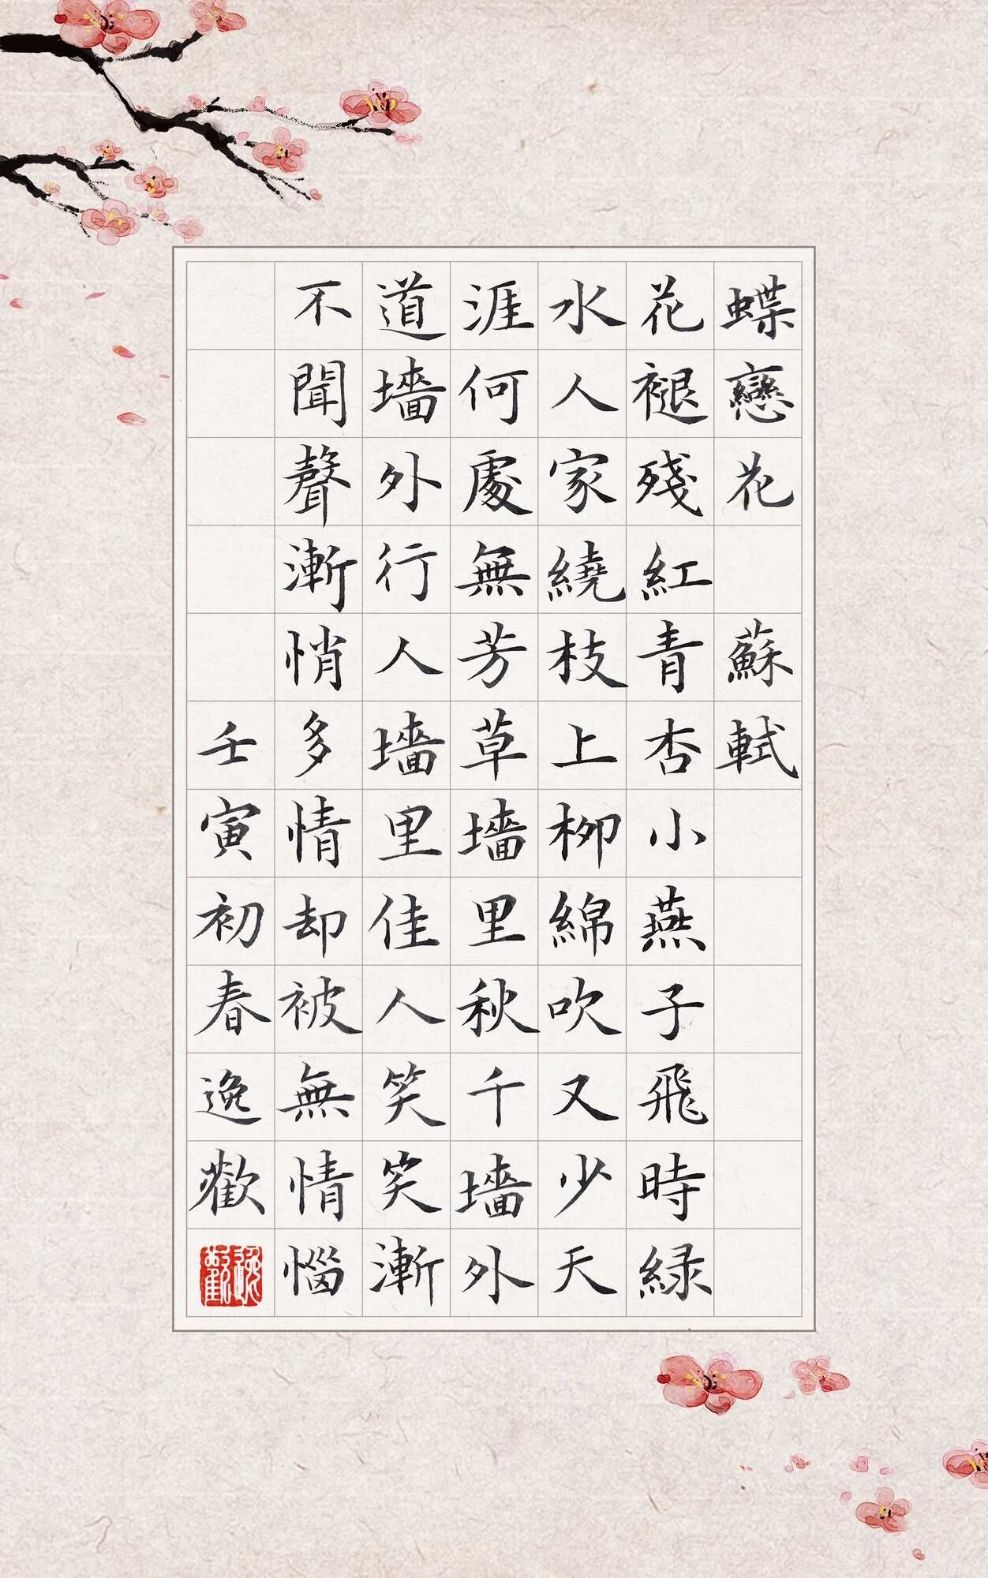 蝶戀花 蘇軾
花褪殘紅青杏小燕子飛時緑
水人家繞枝上柳綿吹又少天
涯何處無芳草墻里秋千墻外
道墻外行人墻里佳人笑笑漸
不聞聲漸悄多情却被無情惱
壬寅初春逸歡
逸歡